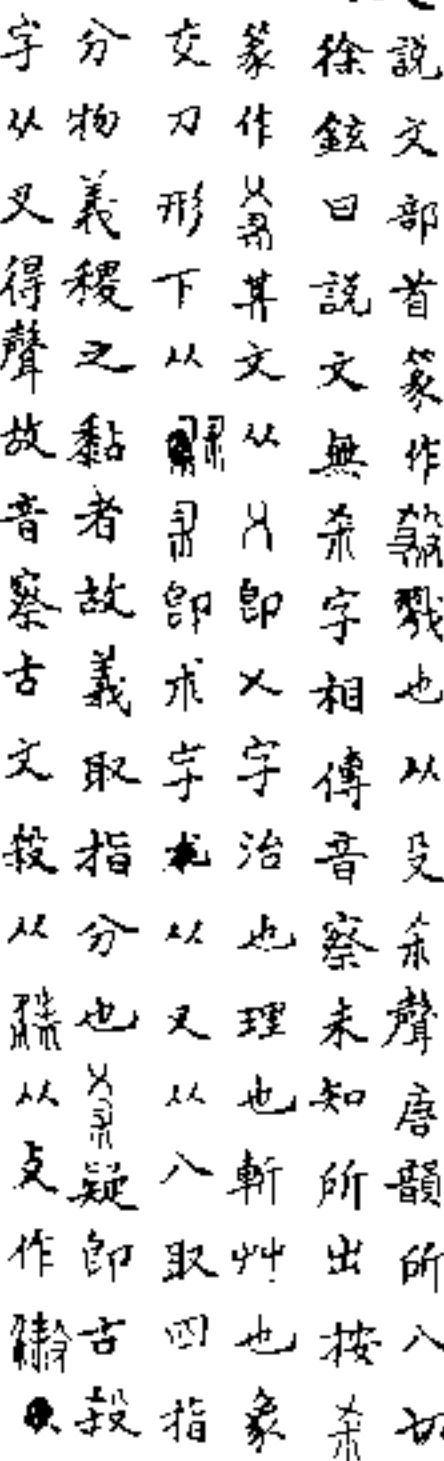 説文部首篆作戮也从殳杀聲唐韻所八切
徐鉉曰説文無杀字相傳音察未知所出按杀
篆作其文从乂卽乂字治也理也斬艸也象
交刀形下从卽朮字朮从又从八取四指
分物義稷之黏者故義取指分也疑卽古殺
字从又得聲故音察古文殺从从攴作